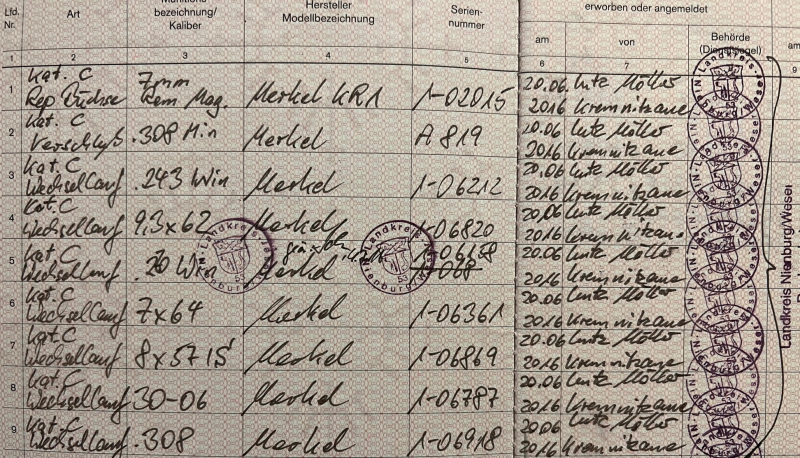 Lfd. Nr.
Art
bezeichnung/
Kaliber
Hersteller
Modellbezeichnung
Serien-
nummer
erworben oder angemeldet
am
von
Behörde
(Dienstsiegel)
am
1 2 3 4 5 6 7 8 9
1 Kat. C 7mm 20.06. Lutz Möller
Rep Büchse Rem Mag. Merkel KR1 1-02015 2016 Kremnitzaue
2 Kat. C 20.06 Lutz Möller
Verschluß .308 Win Merkel A 819 2016 Kremnitzaue
3 Kat. C 20.06 Lutz Möller
Wechsellauf .243 Win Merkel 1-06212 2016 Kremnitzaue
4 Kat. C 20.06 Lutz Möller
Wechsellauf 9,3x62 Merkel 1-06820 2016 Kremnitzaue
5 Kat. C 20.06 Lutz Möller
Wechsellauf Win Merkel 1-068 2016 Kremnitzaue
6 Kat. C 20.06 Lutz Möller
Wechsellauf 7x64 Merkel 1-06361 2016 Kremnitzaue
7 Kat. C 20.06 Lutz Möller
Wechsellauf 8x57 IS Merkel 1-06869 2016 Kremnitzaue
8 Kat. C 20.06 Lutz Möller
Wechsellauf 30-06 Merkel 1-06787 2016 Kremnitzaue
9 Kat. C 20.06 Lutz Möller
Wechsellauf .308 Merkel 1-06918 2016 Kremnitzaue
Landkreis Nienburg/Weser
Landkreis Nienburg/Weser